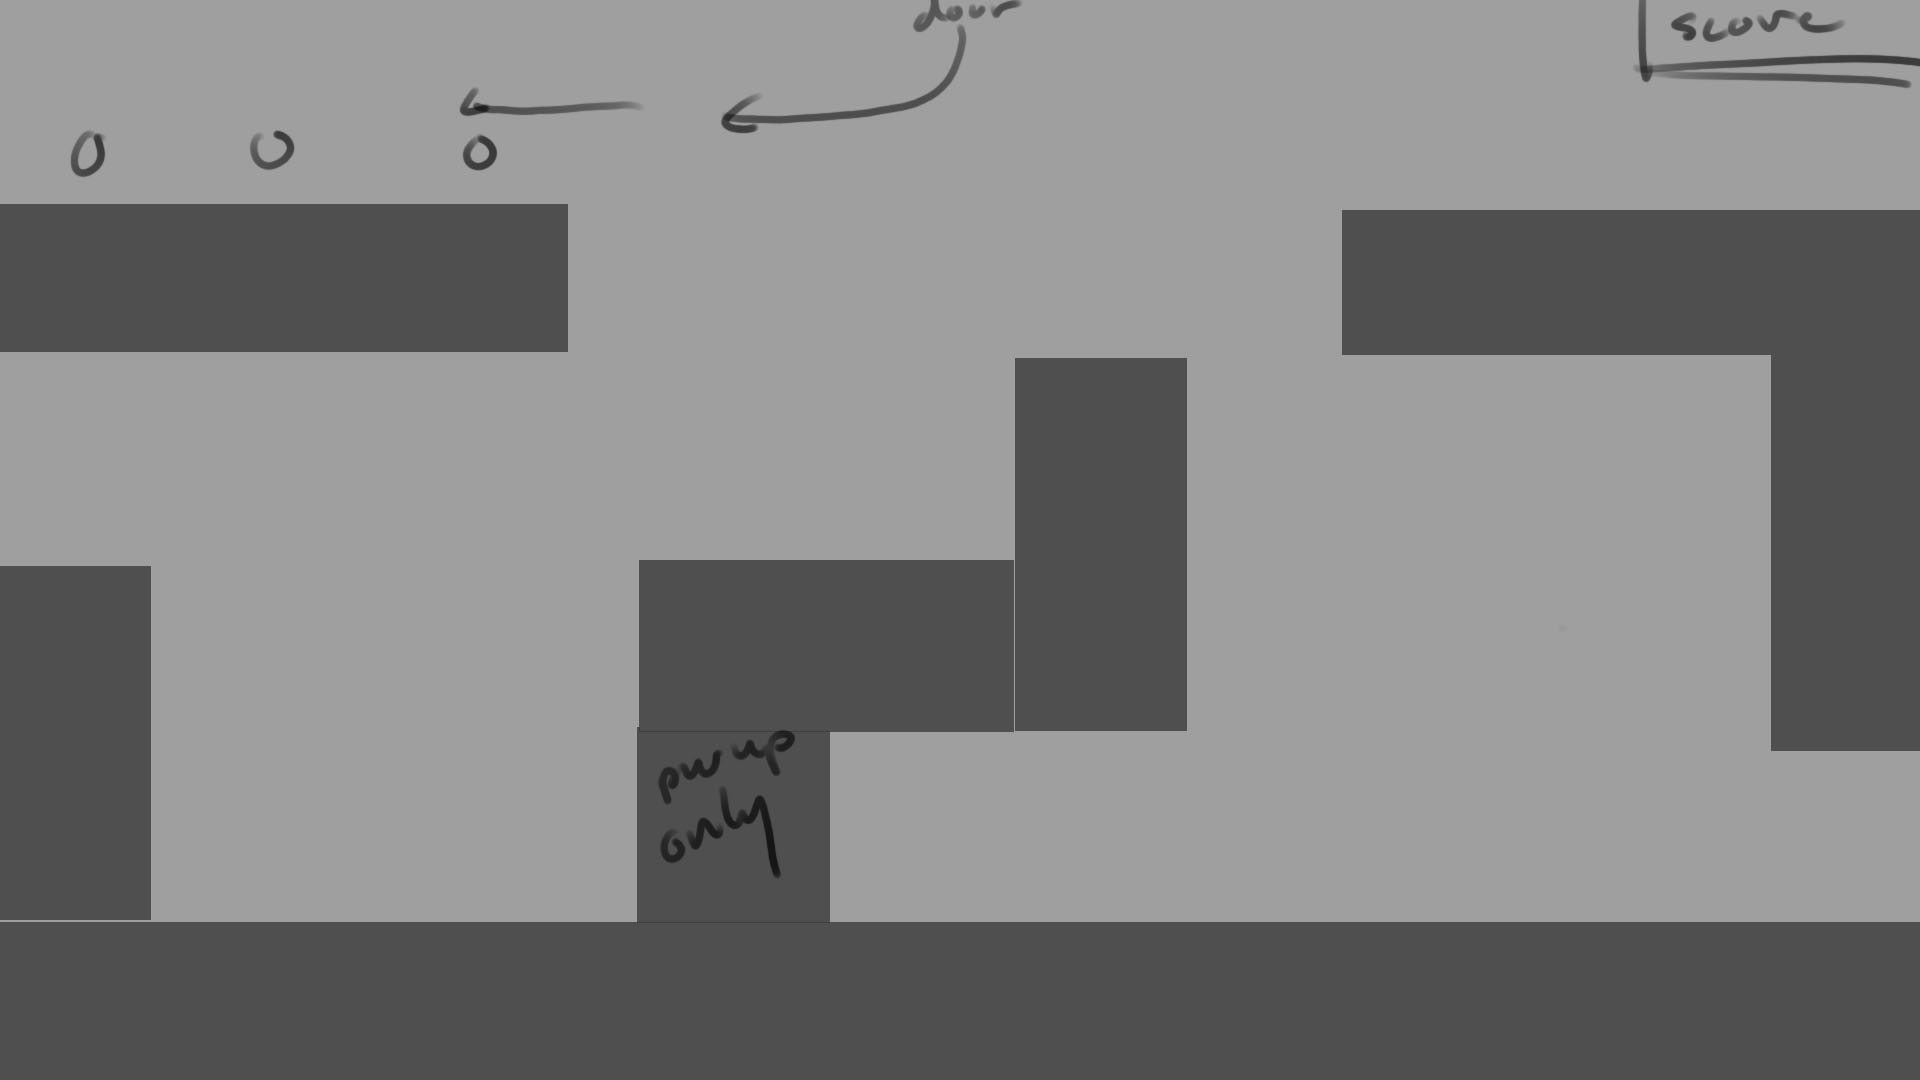 door
score
o o o
pwup
only